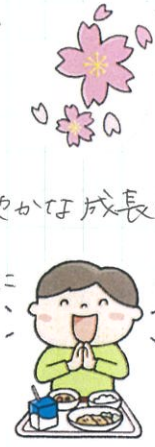 やかな成長